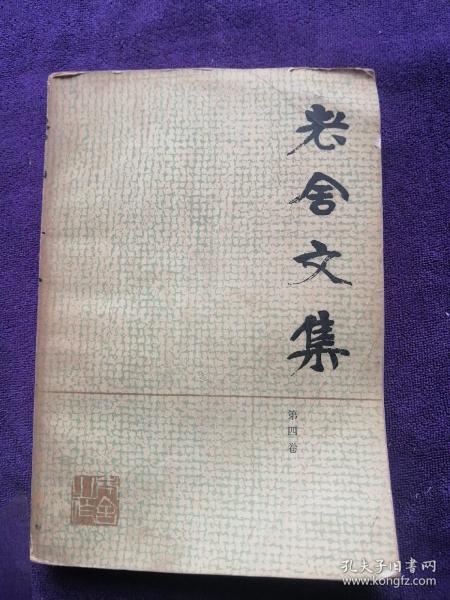 老舍文集
第四卷
孔夫子旧书网
kongfz.com